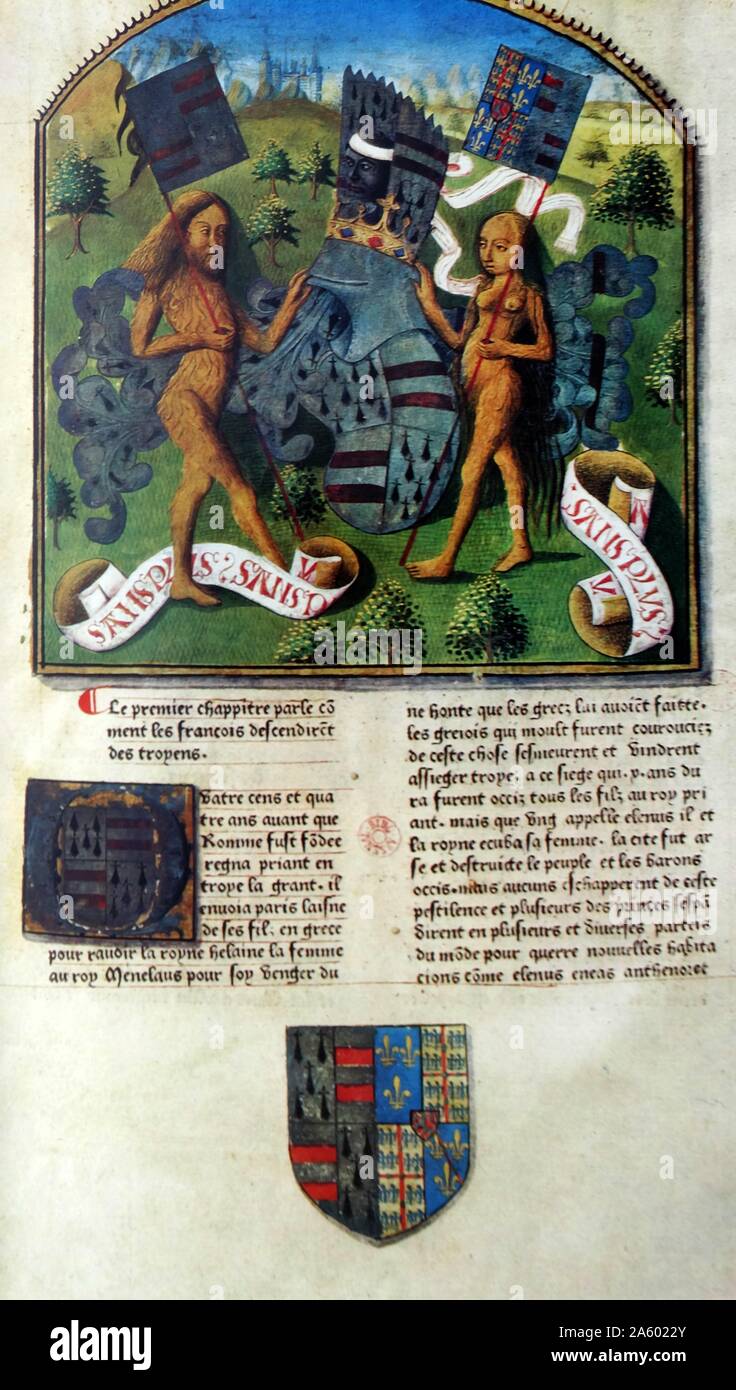 SANS PLUS
SANS PLUS
Le premier chappitre parle cō
ment les francois descendirēt
des troyens.
Vatre cens et qua
tre ans auant que
Romme fust fōdee
regna priant en
troye la grant. il
enuoia paris laisne
de ses filz en grece
pour rauir la royne helaine la femme
au roy Menelaus pour soy venger du
ne honte que les grecz lui auoiēt faitte.
les greiois qui moult furent courouciez
de ceste chose sesmeurent et vindrent
assieger troye. a ce siege qui .x. ans du
ra furent occiz tous les filz au roy pri
ant. mais que vng appelle elenus il et
la royne ecuba sa femme. la cite fut ar
se et destruicte le peuple et les barons
occis. mais aucuns eschapperent de ceste
pestilence et plusieurs des princes sespā
dirent en plusieurs et diuerses parties
du mōde pour querre nouuelles habita
cions cōme elenus eneas anthenor et
alamy stock photo
a alamy
Image ID: 2A6022Y
www.alamy.com